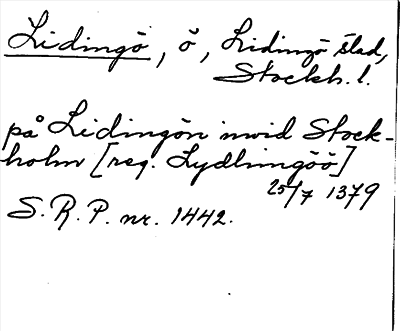 Lidingö, ö, Lidingö stad,
Stockh. l.
på Lidingön invid Stock-
holm [reg. Lydhingöö]
25/7 1379
S.R.P. nr. 1442.